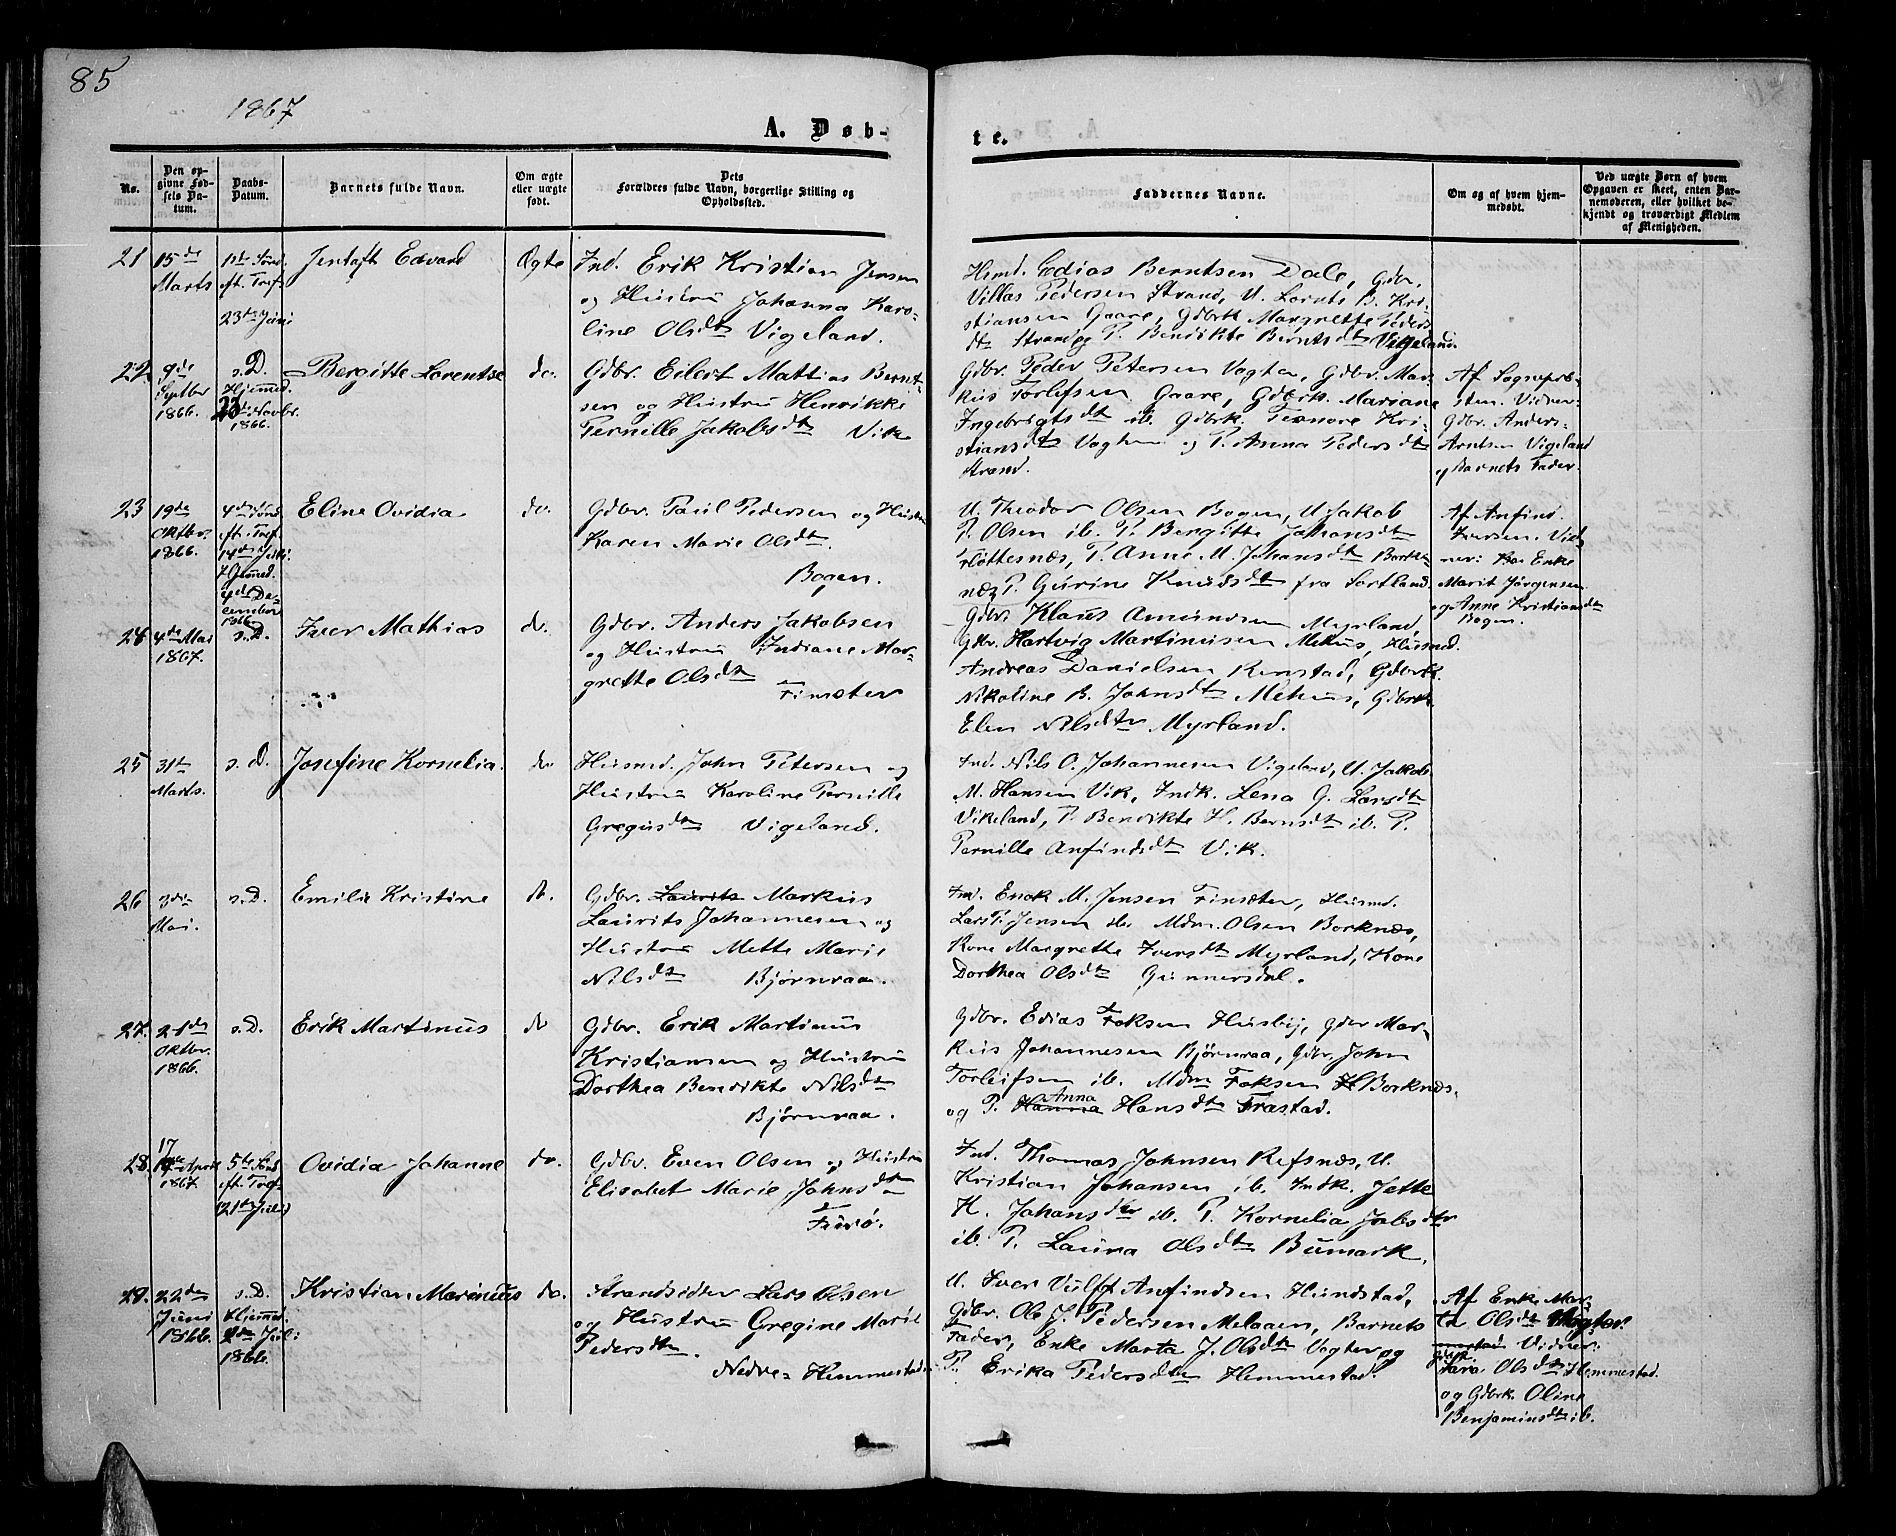 85
1867
A. Døb-
te.
No.
Den op-
givne Fød-
sels Da-
tum.
Daabs-
Datum.
Barnets fulde Navn.
Om ægte
eller uægte
født.
Dets
Forældres fulde Navn, borgerlige Stilling og
Opholdssted.
Faddernes Navne.
Om og af hvem hjem-
medøbt.
Ved uægte Børn af hvem
Opgaven er skeet, enten Bar-
nemoderen, eller hvilket be-
kjendt og troværdigt Medlem
af Menigheden.
21
15de
Marts
1ste Sønd.
eft. Tref.
23de Juni
Jentoft Edvard
Ægte
Ind. Erik Kristian Jensen
og Hustru Johanna Karo-
line Olsdtr Vigeland.
Hsmd. Edias Berntsen Dale, Gdbr.
Villas Pedersen Strand, U. Lornts B. Kri-
stiansen Gaare, Gdbrk Margrette Peders
dtr Strand og P. Bendikte Berntsdtr Vigeland.
22
9de
Septbr
1866.
s. D.
Hjemmed.
23de Novbr.
1866.
Bergitte Lorentse
do.
Gdbr. Eilert Mattias Bernt-
sen og Hustru Henrikke
Pernille Jakobsdtr Vik
Gdbr. Peder Petersen Vogter, Gdbr. Mar-
kus Torlefsen Gaare, Gdbrk. Mariane
Ingebrigtsdtr ib. Gdbrk. Elenore Kri-
stiansdtr Vogter og P. Anna Pedersdtr
Strand.
Af Sognepre-
sten. Vidner:
Gdbr. Anders
Arntsen Vigeland
og Barnets Fader.
23
19de
Oktbr.
1866.
4de Sønd.
eft. Tref.
14de Juli.
Hjemmed.
4de De-
cember
1866
Eline Ovidia
do.
Gdbr. Paul Pedersen og Hustru
Karen Marie Olsdtr.
Bogen.
U. Theodor Olsen Bogen, U. Jakob
P. Olsen ib. P. Bergitte Johansdtr
Fløttesnæs, P. Anne M. Johansdtr Bork-
næs, P. Gurine Knudsdtr fra Sortland.
Af Anfind
Iversen. Vid-
ner: Enke
Marit Jørgensen
og Anne Kristiansdtr
Bogen.
24
4de Mai
1867.
s. D.
Iver Mathias
do.
Gdbr. Anders Jakobsen
og Hustru Indiane Mar-
grette Olsdtr
Finsæter
Gdbr. Klaus Amundsen Myrland,
Gdbr. Hartvig Martinusen Mehus, Husmd.
Andreas Danielsen Renstad, Gdbrk.
Nikoline B. Johnsdtr Mehus, Gdbrk
Elen Nilsdtr Myrland.
25
31te
Marts.
s. D.
Josefine Kornelia.
do
Husmd. John Petersen og
Hustru Karoline Pernille
Gregusdtr Vigeland.
Ind. Nils O. Johannesen Vigeland, U. Jakob
M. Hansen Vik, Indk. Lena G. Larsdtr
Vikeland, P. Bendikte H. Bernsdtr ib. P.
Pernille Anfindsdtr Vik.
26
3die
Mai.
s. D.
Emilie Kristine
do.
Gdbr. Laurits Markus
Laurits Johannesen og
Hustru Mette Marie
Nilsdtr Bjørnraa.
Ind. Enok M. Jensen Finsæter, Husmd.
Lars P. Jensen ib. Mdm. Olsen Borknæs,
Kone Margrette Iversdtr Myrland, Kone
Dorthea Olsdtr Gunnersdal.
27.
21de
Oktbr.
1866.
s. D.
Erik Martinus
do
Gdbr. Erik Martinus
Kristiansen og Hustru
Dorthea Bendikte Nilsdtr
Bjørnraa.
Gdbr. Edias Foksen Husby, Gdbr Mar-
kus Johannesen Bjørnraa, Gdbr. John
Torleifsen ib. Mdm Foksen H Borknæs.
og P. Hanna Anna Hansdtr Frøstad.
28.
17
April
1867.
5te Sønd
eft. Tref.
(21de Juli)
Ovidia Johanne
do.
Gdbr. Even Olsen og Hustru
Elisabet Marie Johnsdtr
Finnø.
Ind. Thomas Johnsen Refsnæs, U.
Kristian Johansen ib. Indk. Jette
H. Johansdtr ib. P. Kornelia Jabsdtr
ib. P. Launa Olsdtr Bumark.
29.
22de
Juni
1866.
s. D.
Hjemmd.
Juli
1866.
Kristian Marinius
do.
Strandsidder Lars Olsen
og Hustru Gregine Marie
Pedersdtr.
Nedre Hemmestad
U. Iver Vulff Anfindsen Hundstad,
Gdbr. Ole J. Pedersen Melaaen, Barnets
Fader, Enke Marta J. Olsdtr Vogter, og
P. Erika Pedersdtr Hemmestad.
Af Enke Mar-
ta Olsdtr Vogter.
Vidner:
Gdbrk.
Sara Olsdtr Hemmestad.
og Gdbrk. Oline
Benjaminsdtr ib.